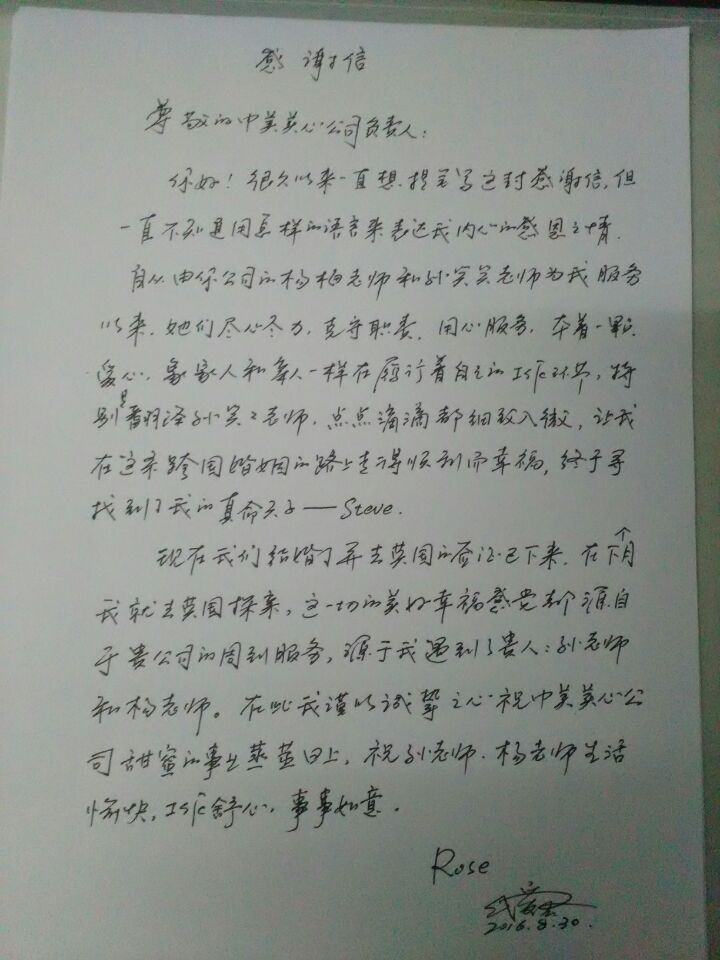 感谢信
尊敬的中美英心公司负责人:
你好!很久以来一直想提笔写这封感谢信,但
一直不知道用怎样的语言来表达我内心的感恩之情.
自从由你公司的杨柏老师和孙笑笑老师为我服务
以来,她们尽心尽力,克守职责,用心服务,本着一颗
爱心,象家人和亲人一样在履行着自己的工作环节,特
别是翻译孙笑笑老师,点点滴滴都细致入微,让我
在这条跨国婚姻的路上走得顺利而幸福,终于寻
找到了我的真命天子——Steve.
现在我们结婚了并去英国的签证已下来,在下个月
我就去英国探亲,这一切的美好幸福感觉都源自
于贵公司的周到服务,源于我遇到了贵人:孙老师
和杨老师。在此我谨以诚挚之心祝中美英心公
司甜蜜的事业蒸蒸日上,祝孙老师.杨老师生活
愉快,工作舒心,事事如意.
Rose
2016.8.30.